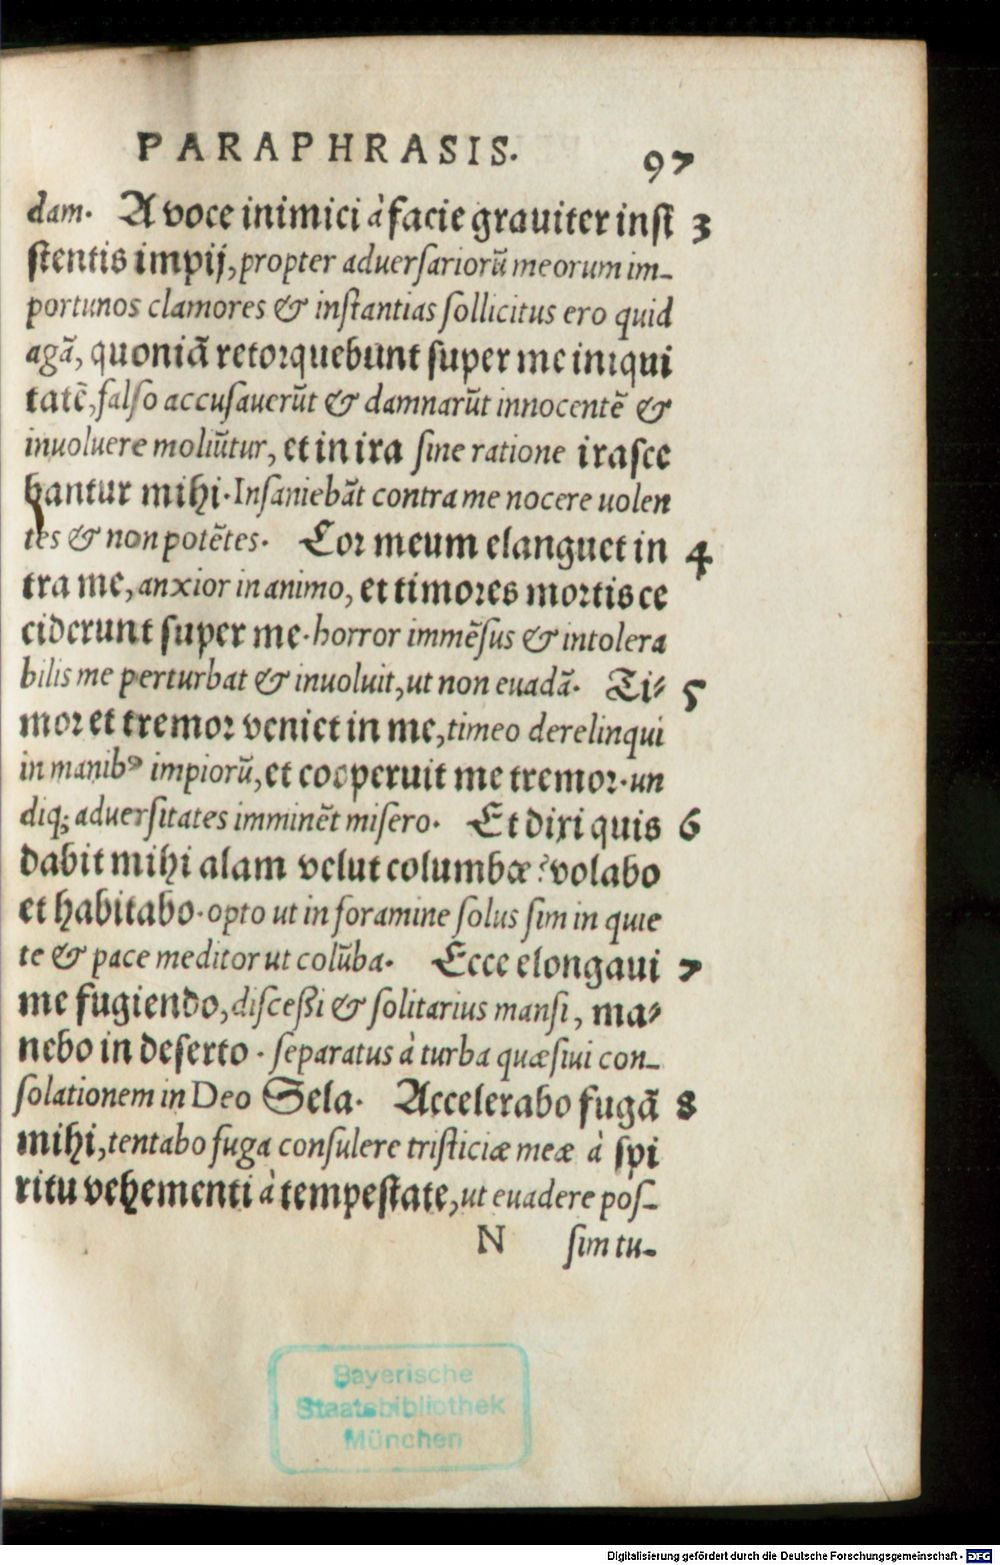 PARAPHRASIS. 97
dam. A voce inimici à facie grauiter insi 3
stentis impij, propter aduersariorũ meorum im-
portunos clamores & instantias sollicitus ero quid
agã, quoniã retorquebunt super me iniqui
tatẽ, falso accusauerũt & damnarũt innocentẽ &
inuoluere moliũtur, et in ira sine ratione irasce
bantur mihi. Insaniebãt contra me nocere uolen
tes & non potẽtes. Cor meum elanguet in 4
tra me, anxior in animo, et timores mortis ce
ciderunt super me. horror immẽsus & intolera
bilis me perturbat & inuoluit, ut non euadã. Ti- 5
mor et tremor veniet in me, timeo derelinqui
in manibꝰ impiorũ, et cooperuit me tremor. un
diq; aduersitates imminẽt misero. Et dixi quis 6
dabit mihi alam velut columbæ? volabo
et habitabo. opto ut in foramine solus sim in quie
te & pace meditor ut colũba. Ecce elongaui 7
me fugiendo, discessi & solitarius mansi, ma-
nebo in deserto. separatus à turba quæsiui con-
solationem in Deo Sela. Accelerabo fugã 8
mihi, tentabo fuga consulere tristiciæ meæ à spi
ritu vehementi à tempestate, ut euadere pos-
N sim tu-
Bayerische
Staatsbibliothek
München
Digitalisierung gefördert durch die Deutsche Forschungsgemeinschaft - DFG